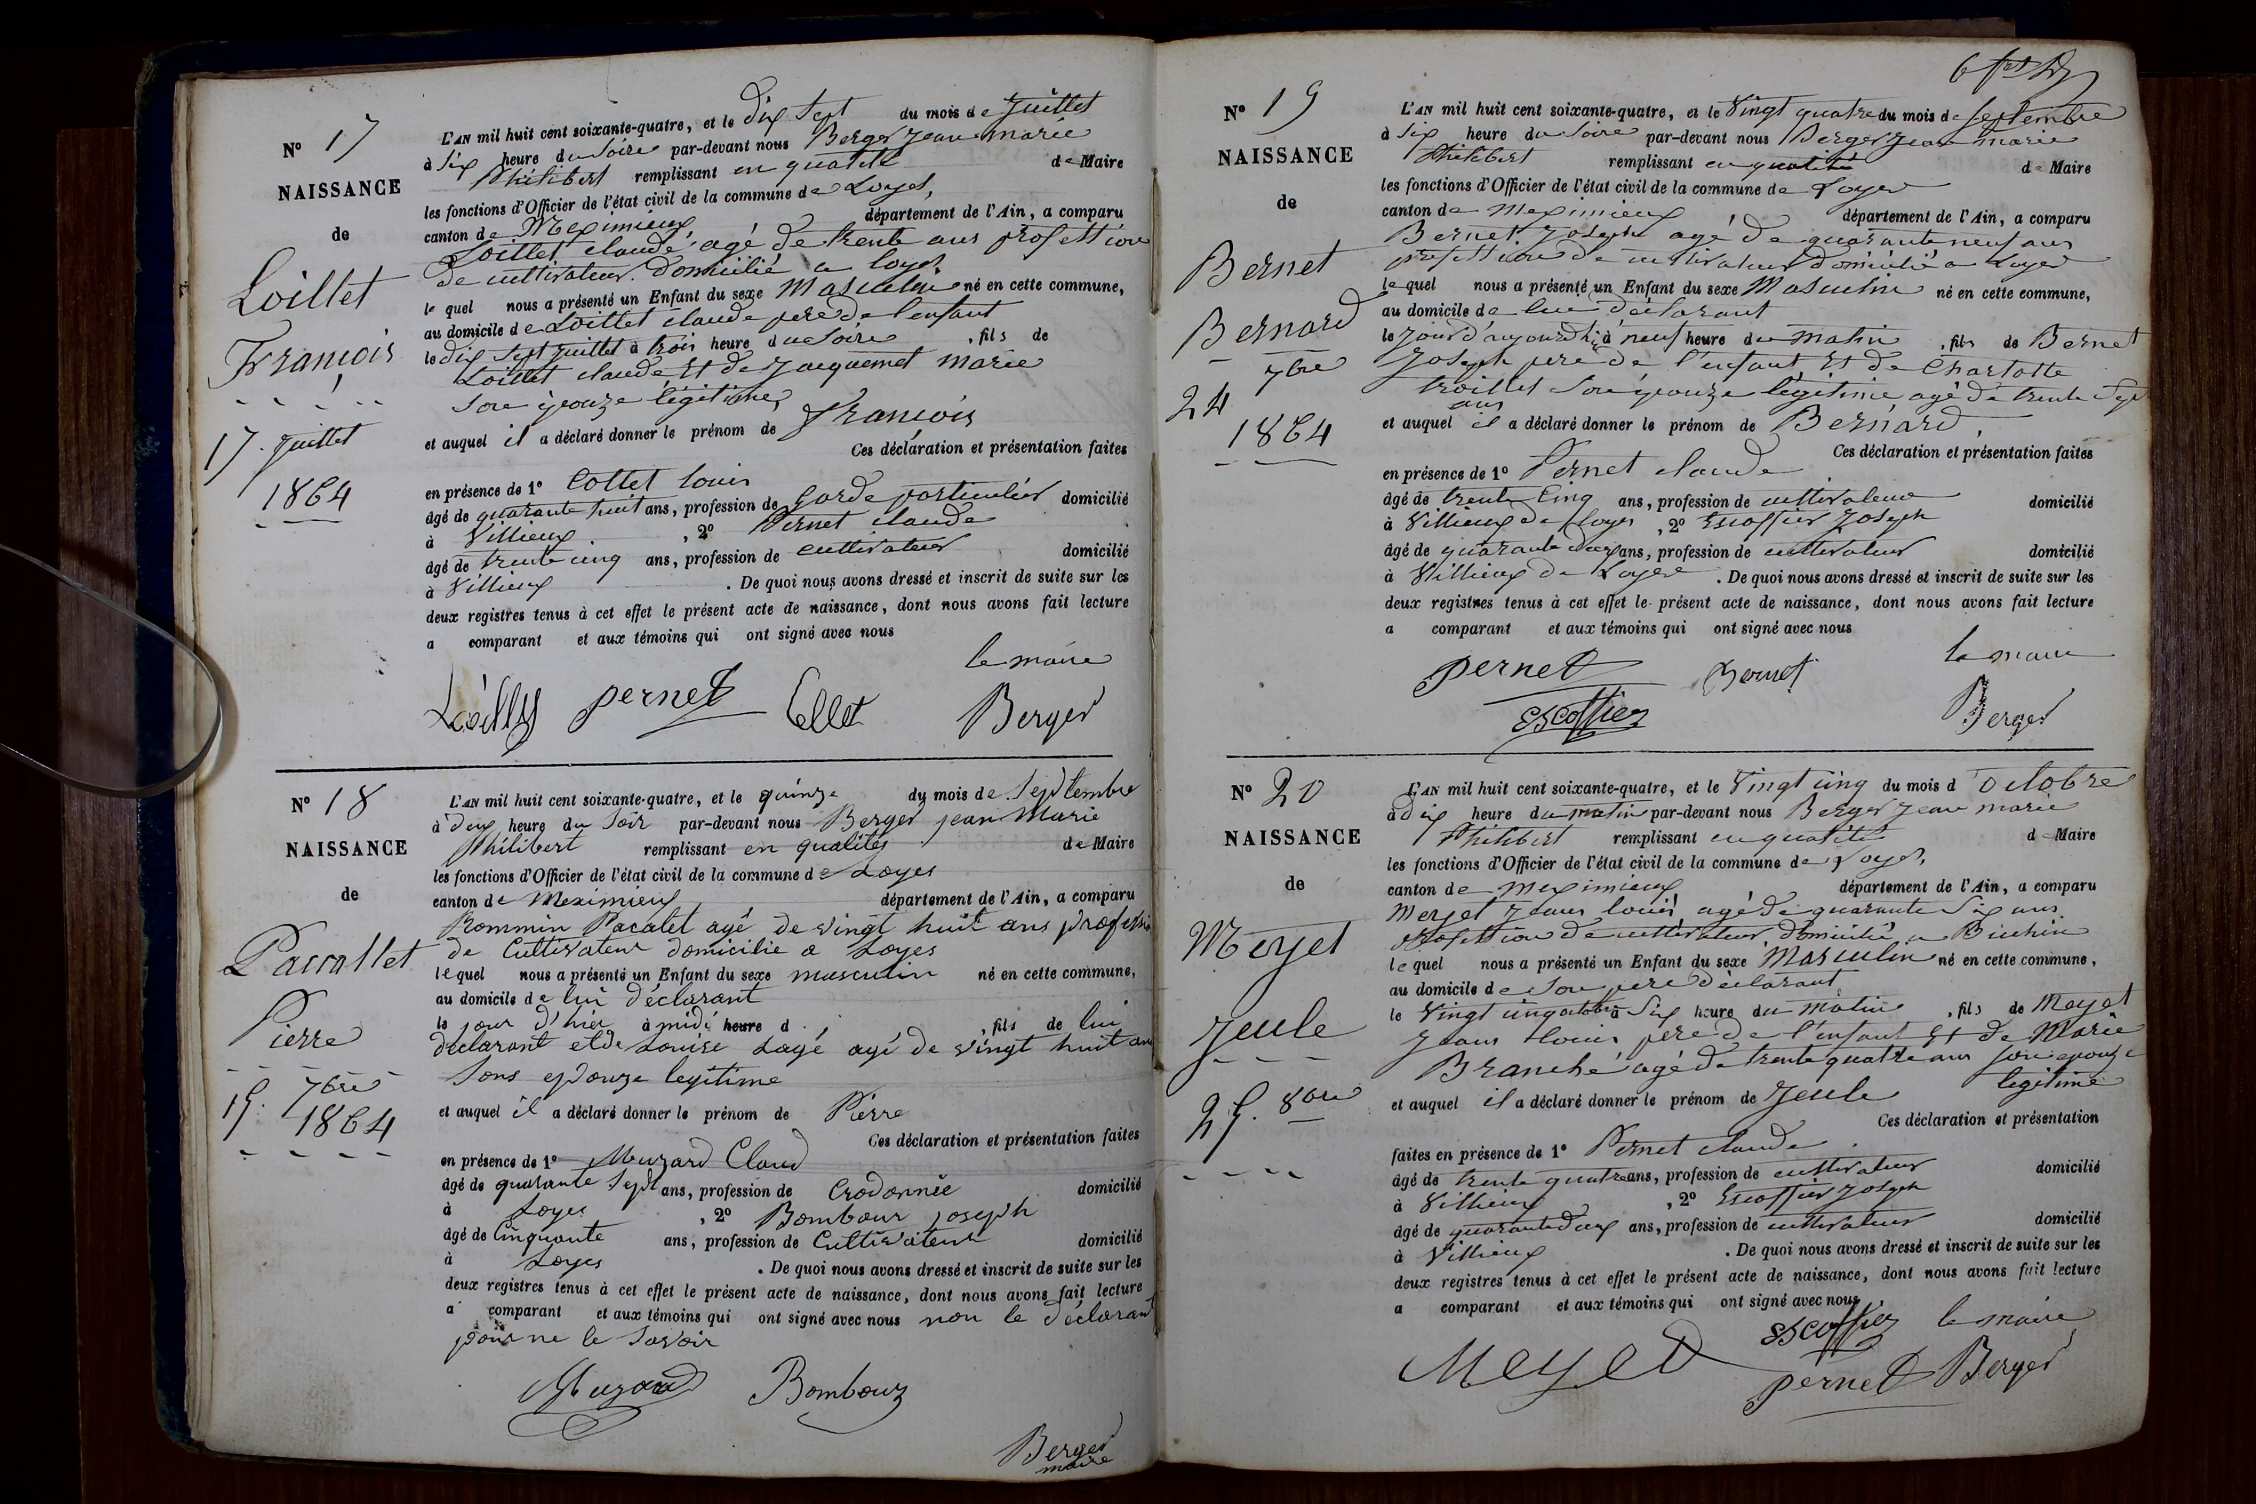 N° 17
NAISSANCE
de
Loillet
François
17. juillet
1864
L'AN mil huit cent soixante-quatre, et le dix sept du mois de juillet
à six heure du soire par-devant nous Berger jean marie
Philibert remplissant en qualité de Maire
les fonctions d'Officier de l'état civil de la commune de Loyes,
canton de Meximieux, département de l'Ain, a comparu
Loillet claude agé de trente ans profession
de cultivateur domicilié a loyes
le quel nous a présenté un Enfant du sexe Masculin né en cette commune,
au domicile de Loillet claude pere de l'enfant
le dix sept juillet à trois heure du soire, fils de
Loillet claude Et de jacquemet marie
son épouze légitime,
et auquel il a déclaré donner le prénom de François
Ces déclaration et présentation faites
en présence de 1° Collet louis
âgé de quarante huit ans, profession de Garde particulier domicilié
à Villieux, 2° Pernet claude
âgé de trente cinq ans, profession de cultivateur domicilié
à Villieux. De quoi nous avons dressé et inscrit de suite sur les
deux registres tenus à cet effet le présent acte de naissance, dont nous avons fait lecture
a comparant et aux témoins qui ont signé avec nous
le maire
pernet Collet Berger
N° 18
NAISSANCE
de
Paccallet
Pierre
15. 7bre
1864
L'AN mil huit cent soixante-quatre, et le quinze du mois de Septembre
à deux heure du soir par-devant nous Berger jean Marie
Philibert remplissant en qualités de Maire
les fonctions d'Officier de l'état civil de la commune de Loyes
canton de Meximieux département de l'Ain, a comparu
Rommin Pacalet agé de vingt huit ans profession
de Cultivateur domicilié a Loyes
le quel nous a présenté un Enfant du sexe masculin né en cette commune,
au domicile de lui déclarant
le jour d'hier à midi heure d, fils de lui
déclarant et de Louise Lagé agé de vingt huit ans
sons epouze legitime
et auquel il a déclaré donner le prénom de Pierre
Ces déclaration et présentation faites
en présence de 1° Muzard Claud
âgé de quarante sept ans, profession de Crodonnée domicilié
à Loyes, 2° Bombour joseph
âgé de Cinquante ans, profession de Cultivateur domicilié
à Loyes. De quoi nous avons dressé et inscrit de suite sur les
deux registres tenus à cet effet le présent acte de naissance, dont nous avons fait lecture
a comparant et aux témoins qui ont signé avec nous non le déclarant
pour ne le savoir
Muzard Bombour
Berger
maire
N° 19
NAISSANCE
de
Bernet
Bernard
7bre
24
1864
L'AN mil huit cent soixante-quatre, et le vingt quatre du mois de septembre
à six heure du soire par-devant nous Berger jean marie
Philibert remplissant en qualité de Maire
les fonctions d'Officier de l'état civil de la commune de Loyes
canton de Meximieux département de l'Ain, a comparu
Bernet joseph agé de quarante neuf ans
profession de cultivateur domicilié a Loyes
le quel nous a présenté un Enfant du sexe Masculin né en cette commune,
au domicile de lui déclarant
le jour d'aujourd'hui à neuf heure du matin, fils de Bernet
joseph pere de l'enfant Et de Charlotte
troillet son épouze légitime, agé de trente sept
ans
et auquel il a déclaré donner le prénom de Bernard,
Ces déclaration et présentation faites
en présence de 1° Pernet claude
âgé de trente cinq ans, profession de cultivateur domicilié
à Villieux de Loyes, 2° Escoffier joseph
âgé de quarante deux ans, profession de cultivateur domicilié
à Villieux de Loyes. De quoi nous avons dressé et inscrit de suite sur les
deux registres tenus à cet effet le présent acte de naissance, dont nous avons fait lecture
a comparant et aux témoins qui ont signé avec nous
le maire
pernet Bernet
Escoffier Berger
N° 20
NAISSANCE
de
Meyet
jeule
25. 8bre
L'AN mil huit cent soixante-quatre, et le vingt cinq du mois d'octobre
à dix heure du matin par-devant nous Berger jean marie
Philibert remplissant en qualité de Maire
les fonctions d'Officier de l'état civil de la commune de Loyes,
canton de meximieux département de l'Ain, a comparu
Meyet jean louis agé de quarante six ans
profession de cultivateur domicilié a Buchin
le quel nous a présenté un Enfant du sexe Masculin né en cette commune,
au domicile de son pere déclarant
le vingt cinq octobre à six heure du matin, fils de Meyet
jean louis pere de l'enfant Et de Marie
Branche agé de trente quatre ans son epouze
légitime
et auquel il a déclaré donner le prénom de jeule
Ces déclaration et présentation
faites en présence de 1° Pernet claude
âgé de trente quatre ans, profession de cultivateur domicilié
à Villieux, 2° Escoffier joseph
âgé de quarante deux ans, profession de cultivateur domicilié
à Villieux. De quoi nous avons dressé et inscrit de suite sur les
deux registres tenus à cet effet le présent acte de naissance, dont nous avons fait lecture
a comparant et aux témoins qui ont signé avec nous
Escoffier le maire
Meyet pernet Berger